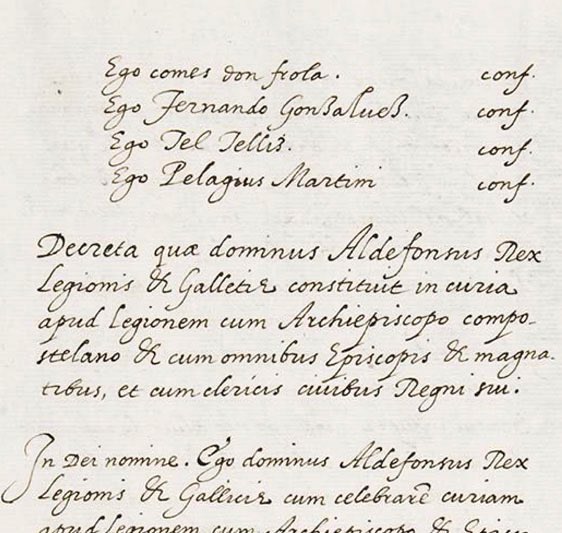 Ego comes don frola. conf.
Ego Fernando Gonsalues. conf.
Ego Tel Tellis. conf.
Ego Pelagius Martini conf.
Decreta quæ dominus Aldefonsus Rex
Legionis & Galletię constituit in curia
apud Legionem cum Archiepiscopo compo-
stelano & cum omnibus Episcopis & magna-
tibus, et cum clericis ciuibus Regni sui.
In Dei nomine. Ego dominus Aldefonsus Rex
Legionis & Gallicię cum celebrarẽ curiam
apud Legionem cum Archiepiscopo &